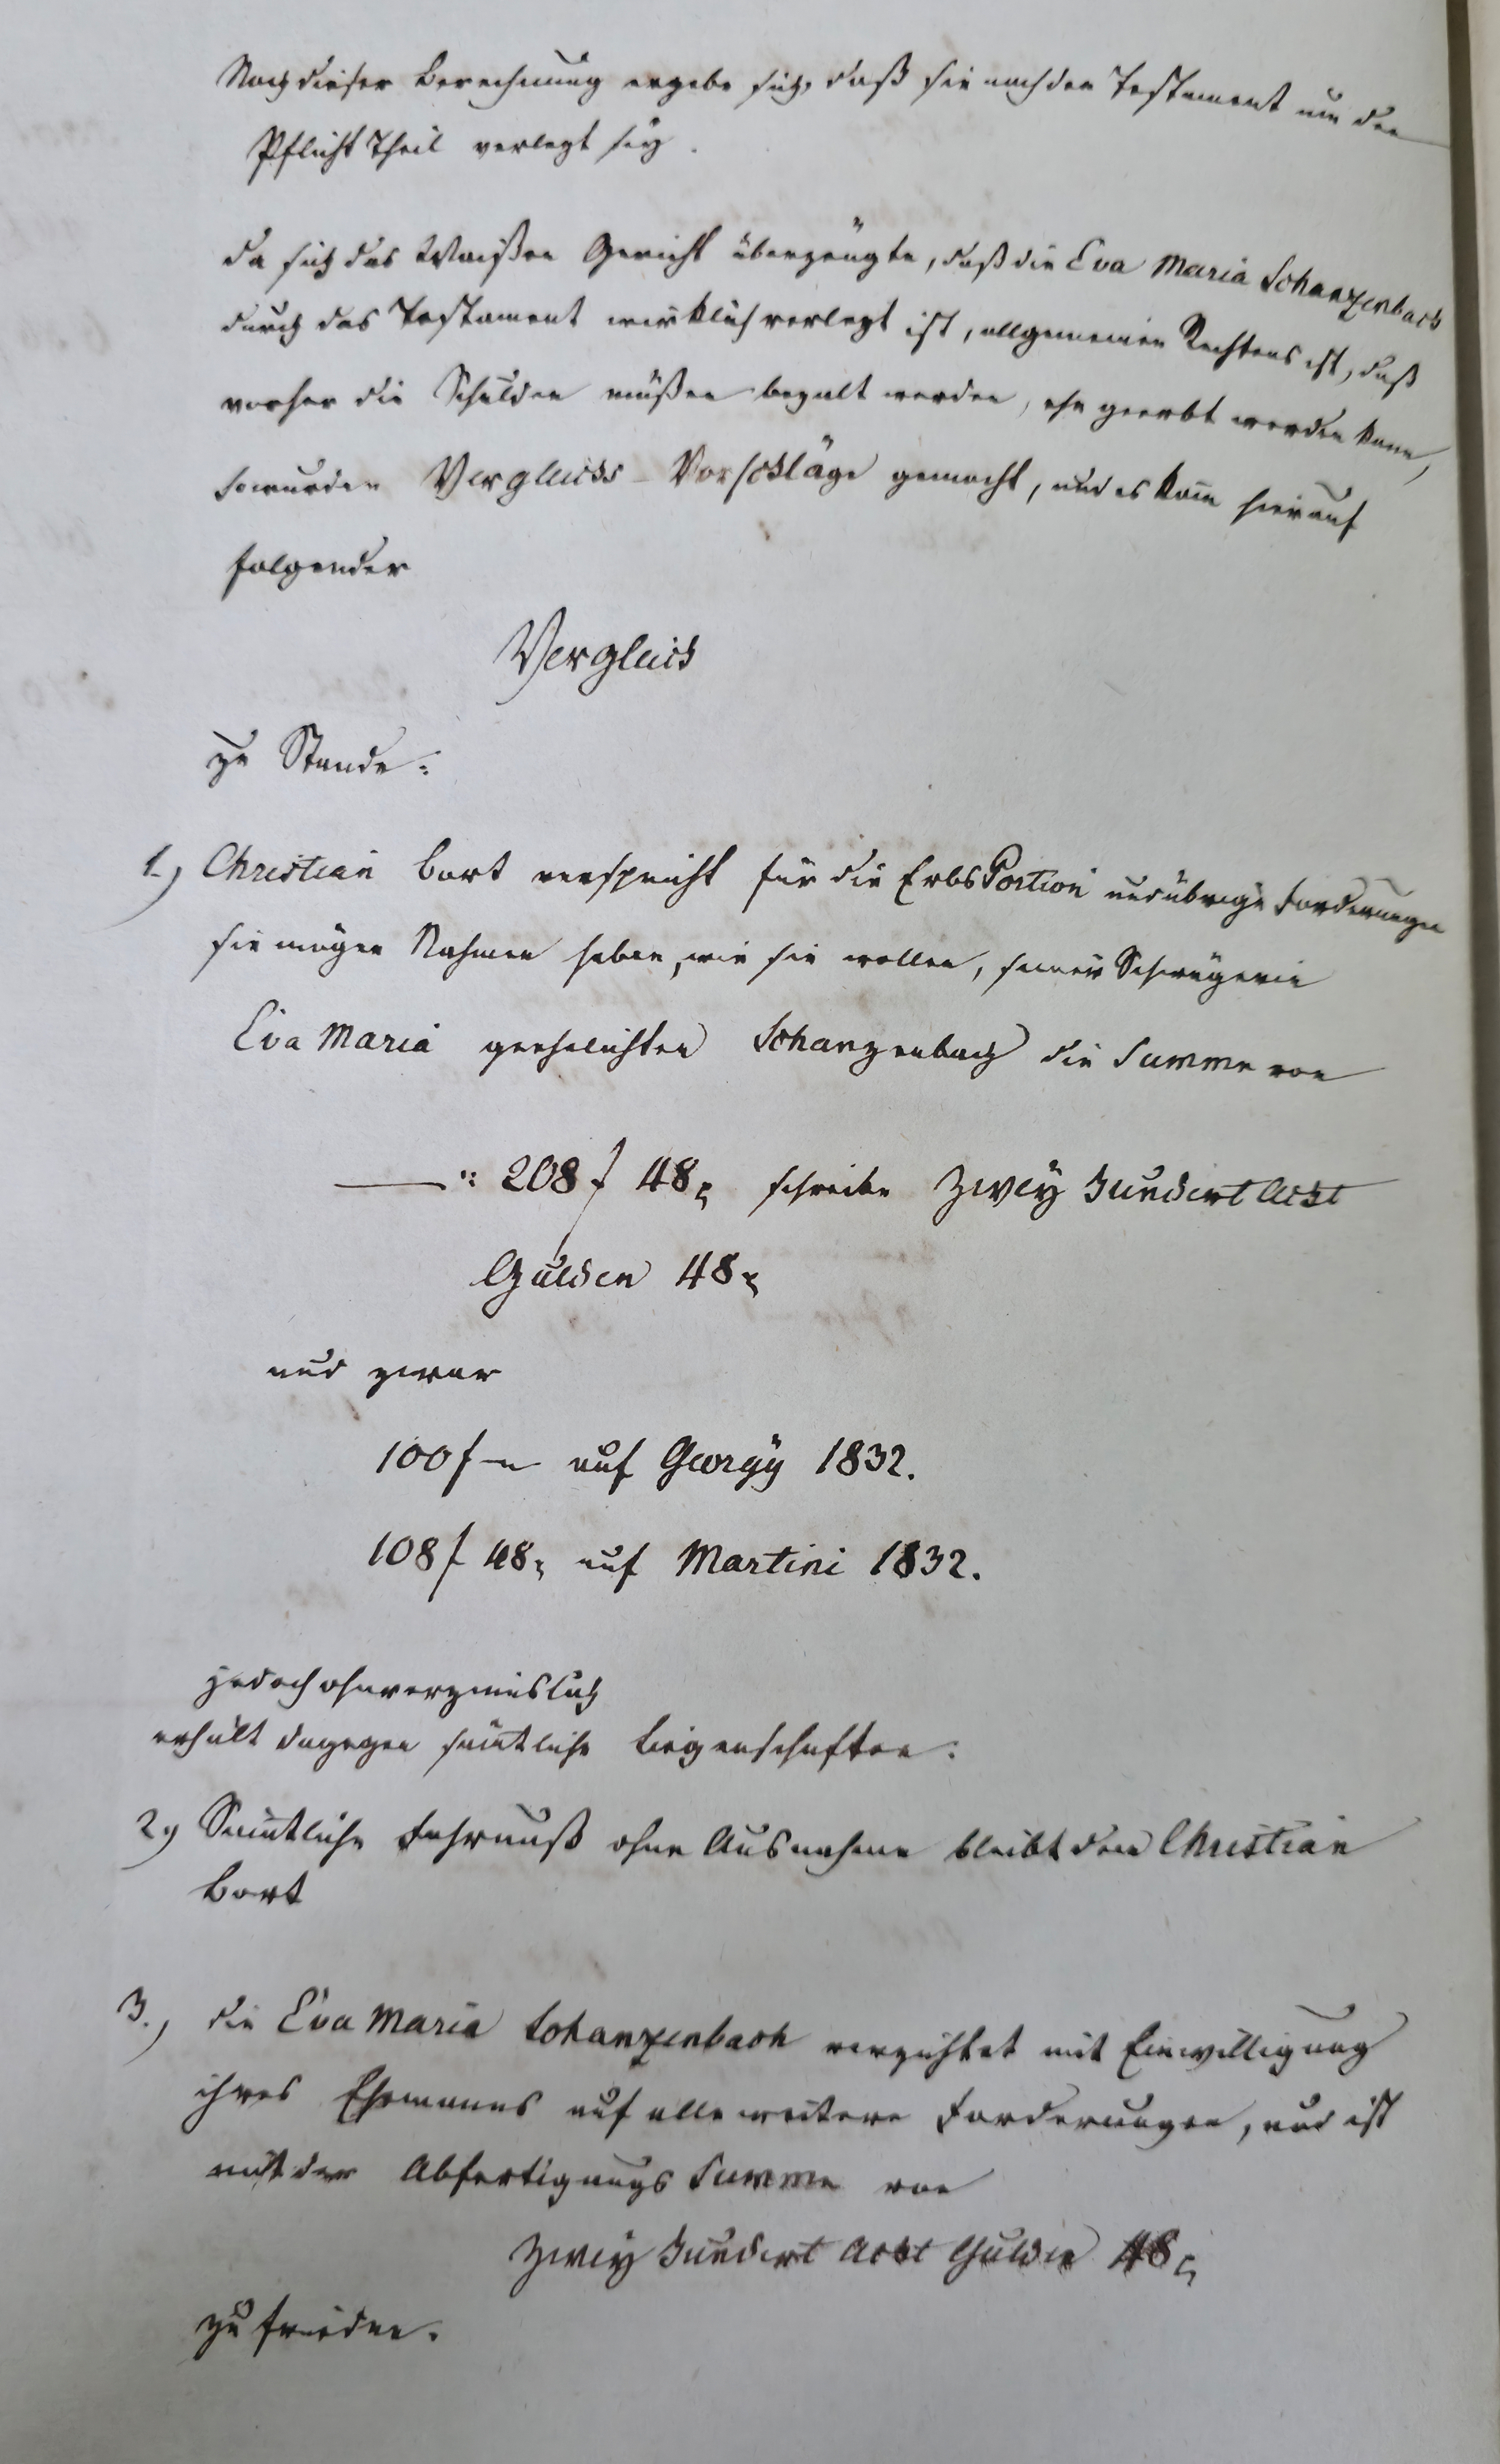 Nach dieser Berechnung ergebe sich, daß sie nach dem Testament um den
Pflicht Theil verlezt sey.
Da sich das Waißen Gericht überzeugte, daß die Eva Maria Schanzenbach
durch das Testament wirklich verlezt ist, allgemeinen Rechtens ist, daß
vorher die Schulden müßen bezalt werden, ehe geerbt werden kann,
so wurden Vergleichs-Vorschläge gemacht, und es kam hierauf
folgender
Vergleich
zu Stande:
1.) Christian Bort verspricht für die ErbsPortion und übrige Forderungen
sie mögen Nahmen haben, wie sie wollen, seiner Schwägerin
Eva Maria geehelichten Schanzenbach die Summe von
—— : 208 f 48 x schreibe Zwey Hundert Acht
Gulden 48 x
und zwar
100 f — auf Georgÿ 1832.
108 f 48 x auf Martini 1832.
jedoch ohnverzinslich
erhält dagegen sämtliche Liegenschaften:
2.) Sämtliche Fahrnuß ohne Ausnahme bleibt dem Christian
Bort
3.) die Eva Maria Schanzenbach verzichtet mit Einwilligung
ihres Ehemanns auf alle weitere Forderungen, und ist
mit der Abfertigungs Summe von
Zweÿ Hundert Acht Gulden 48 x
zufrieden.